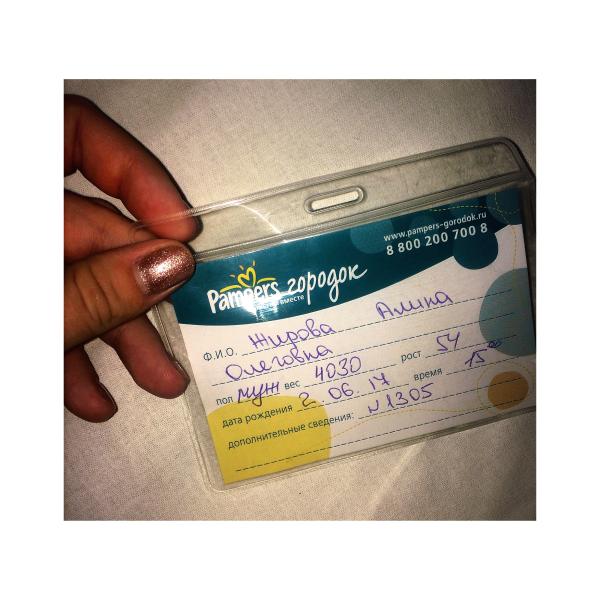 www.pampers-gorodok.ru
8 800 200 700 8
Pampers городок
вместе
Ф.И.О. Жирова Алина
Олеговна
пол муж вес 4030 рост 54
дата рождения 2. 06. 17 время 15 00
дополнительные сведения: N1305